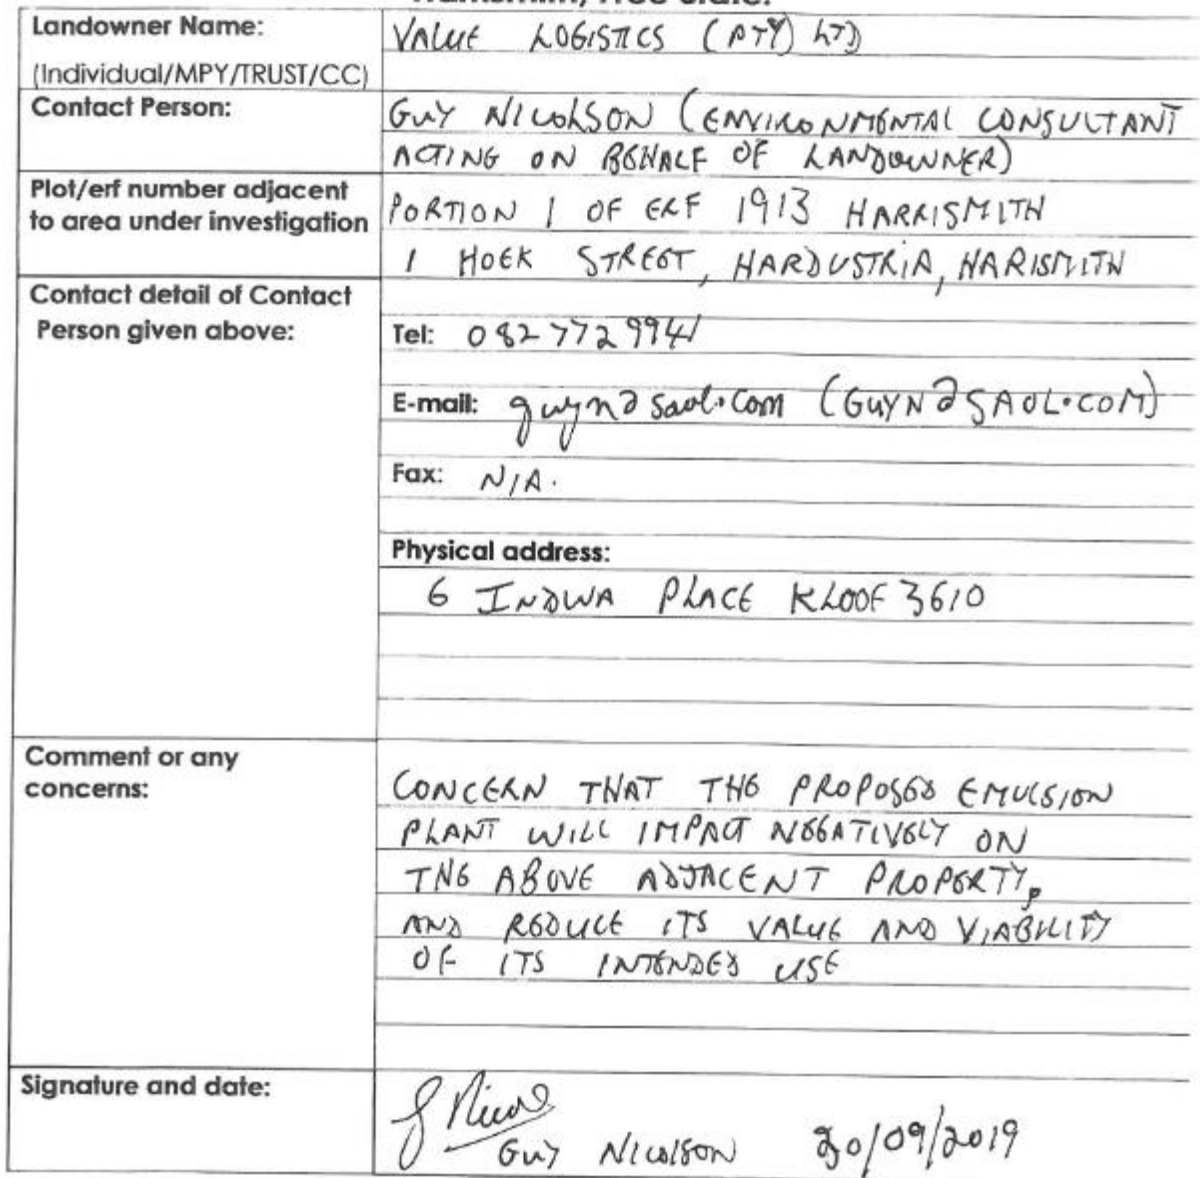 Harrismith, Free State.
Landowner Name:
(Individual/MPY/TRUST/CC)
VALUE LOGISTICS (PTY) LTD
Contact Person:
GUY NICOLSON (ENVIRONMENTAL CONSULTANT
ACTING ON BEHALF OF LANDOWNER)
Plot/erf number adjacent
to area under investigation
PORTION 1 OF ERF 1913 HARRISMITH
1 HOEK STREET, HARDUSTRIA, HARISMITH
Contact detail of Contact
Person given above:
Tel: 082 772 9941
E-mail: guyn@saol.com (GUYN@SAOL.COM)
Fax: N/A.
Physical address:
6 INDWA PLACE KLOOF 3610
Comment or any
concerns:
CONCERN THAT THE PROPOSED EMULSION
PLANT WILL IMPACT NEGATIVELY ON
THE ABOVE ADJACENT PROPERTY,
AND REDUCE ITS VALUE AND VIABILITY
OF ITS INTENDED USE
Signature and date:
GUY NICOLSON 30/09/2019